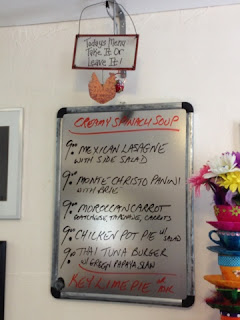 Todays Menu
Take It Or
Leave It!
CREAMY SPINACH SOUP
9.00 MEXICAN LASAGNE
WITH SIDE SALAD
9.00 MONTE CHRISTO PANINI
WITH BRIE
9.00 MOROCCAN CARROT
GOAT CHEESE, CARROTS
9.00 CHICKEN POT PIE W/ SALAD
9.00 THAI TUNA BURGER
W/ GREEN PAPAYA SLAW
KEY LIME PIE